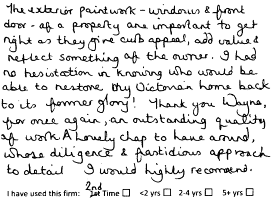 The exterior paintwork - windows & front
door - of a property are important to get
right as they give curb appeal, add value &
reflect something of the owner. I had
no hesistation in knowing who would be
able to restore my Victorian home back
to its former glory! Thank you Wayne,
for once again, an outstanding quality
of work. A lovely chap to have around,
whose diligence & fastidious approach
to detail I would highly recommend.
2nd
I have used this firm: 1st Time □ <2 yrs □ 2-4 yrs □ 5+ yrs □